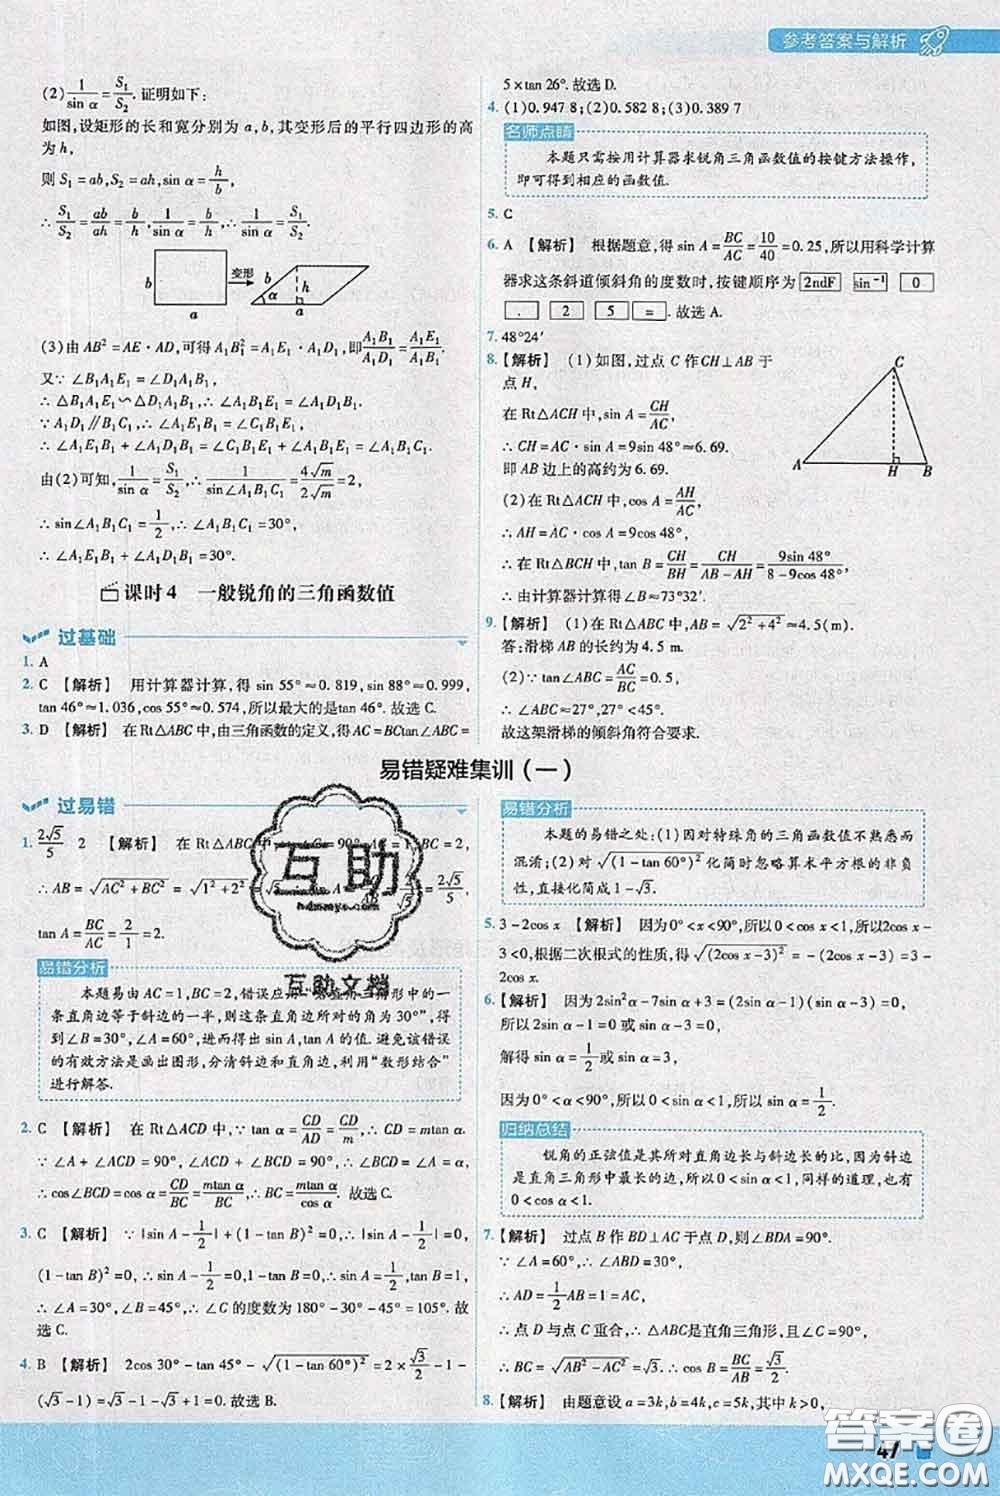 参考答案与解析
(2) 1/sin α = S₁/S₂. 证明如下:
如图,设矩形的长和宽分别为 a,b,其变形后的平行四边形的高
为 h,
则 S₁=ab,S₂=ah,sin α=h/b,
∴ S₁/S₂=ab/ah=b/h,1/sin α=b/h,∴ 1/sin α=S₁/S₂.
b a 变形 b α h a
(3)由 AB²=AE·AD,可得 A₁B₁²=A₁E₁·A₁D₁,即 A₁B₁/A₁D₁=A₁E₁/A₁B₁.
又∵ ∠B₁A₁E₁=∠D₁A₁B₁,
∴ △B₁A₁E₁∽△D₁A₁B₁,∴ ∠A₁B₁E₁=∠A₁D₁B₁.
∵ A₁D₁∥B₁C₁,∴ ∠A₁E₁B₁=∠C₁B₁E₁,
∴ ∠A₁E₁B₁+∠A₁D₁B₁=∠C₁B₁E₁+∠A₁B₁E₁=∠A₁B₁C₁.
由(2)可知,1/sin α=S₁/S₂,∴ 1/sin∠A₁B₁C₁=4√m/2√m=2,
∴ sin∠A₁B₁C₁=1/2,∴ ∠A₁B₁C₁=30°,
∴ ∠A₁E₁B₁+∠A₁D₁B₁=30°.
课时4 一般锐角的三角函数值
过基础
1. A
2. C 【解析】 用计算器计算,得 sin 55°≈0.819,sin 88°≈0.999,
tan 46°≈1.036,cos 55°≈0.574,所以最大的是tan 46°.故选 C.
3. D 【解析】 在 Rt△ABC 中,由三角函数的定义,得 AC=BCtan∠ABC=
5×tan 26°.故选 D.
4. (1)0.947 8;(2)0.582 8;(3)0.389 7
名师点睛
本题只需按用计算器求锐角三角函数值的按键方法操作,
即可得到相应的函数值.
5. C
6. A 【解析】 根据题意,得 sin A=BC/AC=10/40=0.25,所以用科学计算
器求这条斜道倾斜角的度数时,按键顺序为 2ndF sin⁻¹ 0
. 2 5 =.故选 A.
7. 48°24′
8. 【解析】 (1)如图,过点 C 作 CH⊥AB 于
点 H,
在 Rt△ACH 中,sin A=CH/AC,
∴ CH=AC·sin A=9sin 48°≈6.69.
即 AB 边上的高约为 6.69.
C A H B
(2)在 Rt△ACH 中,cos A=AH/AC,
∴ AH=AC·cos A=9cos 48°,
∴ 在 Rt△BCH 中,tan B=CH/BH=CH/(AB-AH)=9sin 48°/(8-9cos 48°),
∴ 由计算器计得∠B≈73°32′.
9. 【解析】 (1)在 Rt△ABC 中,AB=√(2²+4²)≈4.5(m).
答:滑梯 AB 的长约为 4.5 m.
(2)∵ tan∠ABC=AC/BC=0.5,
∴ ∠ABC≈27°,27°<45°.
故这架滑梯的倾斜角符合要求.
易错疑难集训(一)
过易错
1. 2√5/5 2 【解析】 在 Rt△ABC 中 ∠C=90° AC=1,BC=2,
∴ AB=√(AC²+BC²)=√(1²+2²)=√5 2√5/5,
tan A=BC/AC=2/1=2.
易错分析
本题易由 AC=1,BC=2,错误应用 角形中的一
条直角边等于斜边的一半,则这条直角边所对的角为 30°",得
到∠B=30°,∠A=60°,进而得出 sin A,tan A 的值.避免该错误
的有效方法是画出图形,分清斜边和直角边,利用"数形结合"
进行解答.
2. C 【解析】 在 Rt△ACD 中,∵ tan α=CD/AD=CD/m,∴ CD=mtan α.
∵ ∠A+∠ACD=90°,∠ACD+∠BCD=90°,∴ ∠BCD=∠A=α,
∴ cos∠BCD=CD/BC=mtan α/BC,∴ BC=mtan α/cos α. 故选 C.
3. C 【解析】 ∵ |sin A-1/2|+(1-tan B)²=0,∴ |sin A-1/2|=0,
(1-tan B)²=0,∴ sin A-1/2=0,1-tan B=0,∴ sin A=1/2,tan B=1,
∴ ∠A=30°,∠B=45°,∴ ∠C 的度数为 180°-30°-45°=105°.故
选 C.
4. B 【解析】 2cos 30°-tan 45°-√((1-tan 60°)²)=2×√3/2-1-
(√3-1)=√3-1-√3+1=0.故选 B.
易错分析
本题的易错之处:(1)因对特殊角的三角函数值不熟悉而
混淆;(2)对√((1-tan 60°)²)化简时忽略算术平方根的非负
性,直接化简成 1-√3.
5. 3-2cos x 【解析】 因为 0°<x<90°,所以 0<cos x<1,所以 2cos x-3
<0,根据二次根式的性质,得√((2cos x-3)²)=-(2cos x-3)=3-2cos
x.
6. 【解析】 因为 2sin²α-7sin α+3=(2sin α-1)(sin α-3)=0,
所以 2sin α-1=0 或 sin α-3=0,
解得 sin α=1/2或 sin α=3,
因为 0°<α<90°,所以 0<sin α<1,所以 sin α=1/2.
归纳总结
锐角的正弦值是其所对直角边长与斜边长的比,因为斜边
是直角三角形中最长的边,所以 0<sin α<1,同样的道理,也有
0<cos α<1.
7. 【解析】 过点 B 作 BD⊥AC 于点 D,则∠BDA=90°.
∵ ∠A=60°,∴ ∠ABD=30°,
∴ AD=1/2AB=1=AC,
∴ 点 D 与点 C 重合,∴ △ABC 是直角三角形,∠C=90°,
∴ BC=√(AB²-AC²)=√3,∴ cos B=BC/AB=√3/2.
8. 【解析】 由题意设 a=3k,b=4k,c=5k,其中 k>0,
互助
hdzuoye.com
互助文档
47
答案圈
MXQE.COM